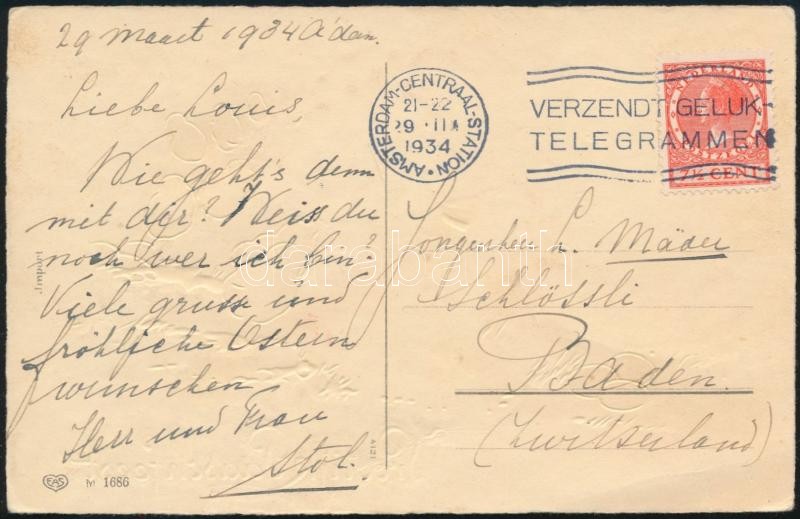 29 maart 1934 A'dam.
Liebe Louis,
Wie geht's denn
mit dir? Weiss du
noch wer ich bin?
Viele gruss und
fröhliche Ostern
wunschen
Herr und Frau
Stol.
AMSTERDAM-CENTRAAL-STATION
21-22
29 · III
1934
VERZENDT GELUK-
TELEGRAMMEN
NEDERLAND
7½ CENT
Jongenheer L. Mäder
Schlössli
Baden.
(Zwitserland)
Import
4121
EAS
M 1686
darabanth